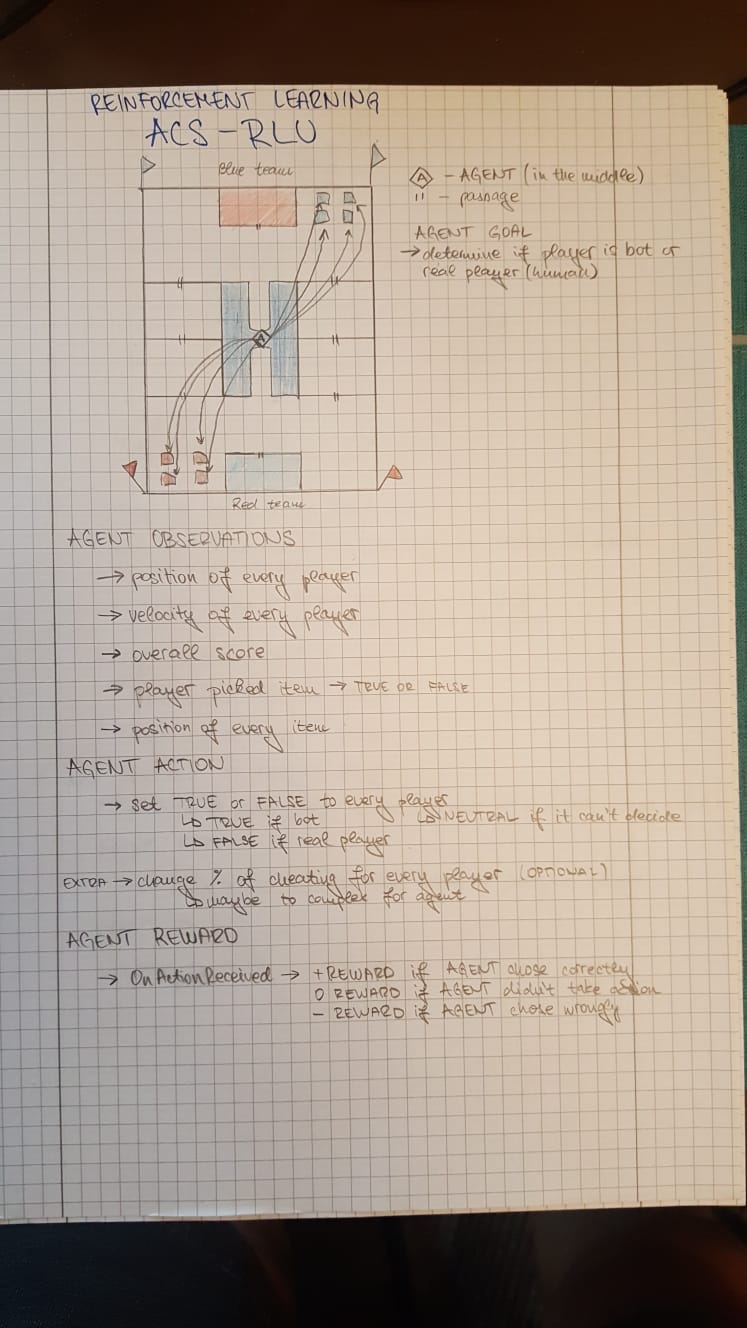 REINFORCEMENT LEARNING
ACS-RLU
Blue team
A - AGENT (in the middle)
" - passage
AGENT GOAL
→ determine if player is bot or
real player (human)
A
Red team
AGENT OBSERVATIONS
→ position of every player
→ velocity of every player
→ overall score
→ player picked item → TRUE OR FALSE
→ position of every item
AGENT ACTION
→ set TRUE or FALSE to every player
↳ TRUE if bot ↳ NEUTRAL if it can't decide
↳ FALSE if real player
EXTRA → change % of cheating for every player (OPTIONAL)
↳ maybe to complex for agent
AGENT REWARD
→ OnActionReceived → + REWARD if AGENT chose correctly
0 REWARD if AGENT didn't take action
- REWARD if AGENT chose wrongly